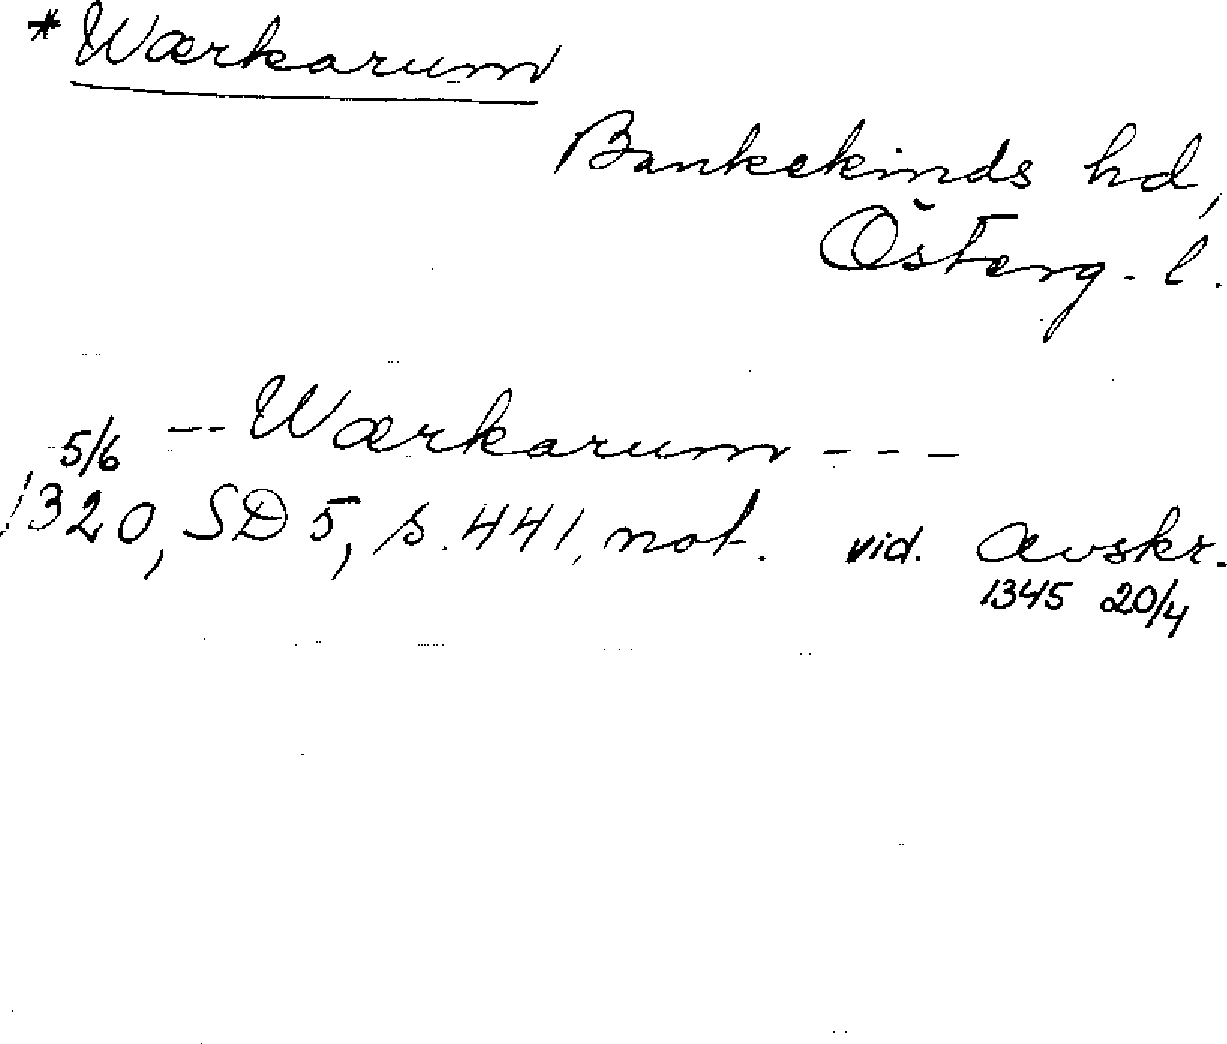 *Wærkarum
Bankekinds hd,
Österg. l.
-- Wærkarum ---
5/6
1320, SD 5, s. 441, not. vid. avskr.
1345 20/4